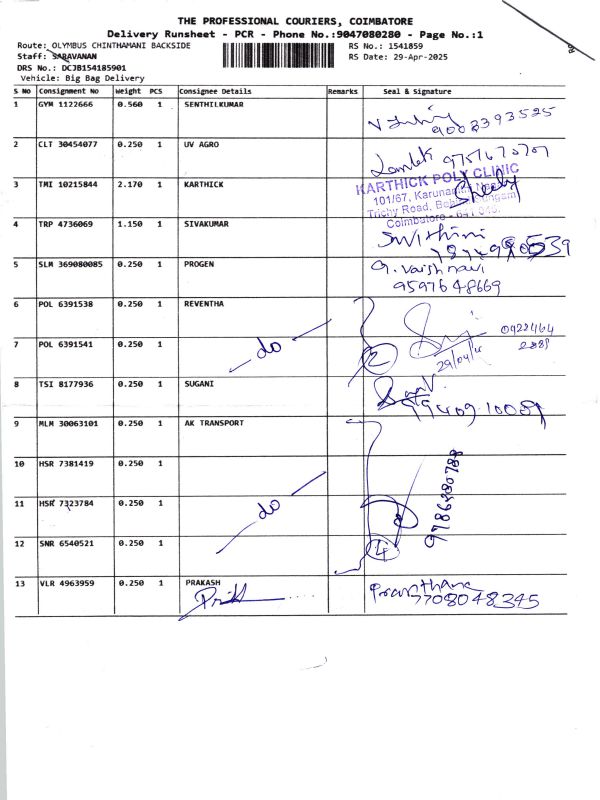 THE PROFESSIONAL COURIERS, COIMBATORE
Delivery Runsheet - PCR - Phone No.:9047080280 - Page No.:1
Route: OLYMBUS CHINTHAMANI BACKSIDE
RS No.: 1541859
Staff: SARAVANAN
RS Date: 29-Apr-2025
DRS No.: DCJB154185901
Vehicle: Big Bag Delivery
S No Consignment No Weight PCS Consignee Details Remarks Seal & Signature
1 GYM 1122666 0.560 1 SENTHILKUMAR
9003393525
2 CLT 30454077 0.250 1 UV AGRO
3 TMI 10215844 2.170 1 KARTHICK
KARTHICK POLY CLINIC
101/67, Karunanithi Nagar
Trichy Road,
Coimbatore - 641
4 TRP 4736069 1.150 1 SIVAKUMAR
5 SLM 369080085 0.250 1 PROGEN
G. Vaishnavi
9597648669
6 POL 6391538 0.250 1 REVENTHA
0422464
7 POL 6391541 0.250 1
do
2
29/04/
8 TSI 8177936 0.250 1 SUGANI
9 MLM 30063101 0.250 1 AK TRANSPORT
10 HSR 7381419 0.250 1
11 HSR 7323784 0.250 1
do
12 SNR 6540521 0.250 1
4
13 VLR 4963959 0.250 1 PRAKASH
Prasanthana
7708048345